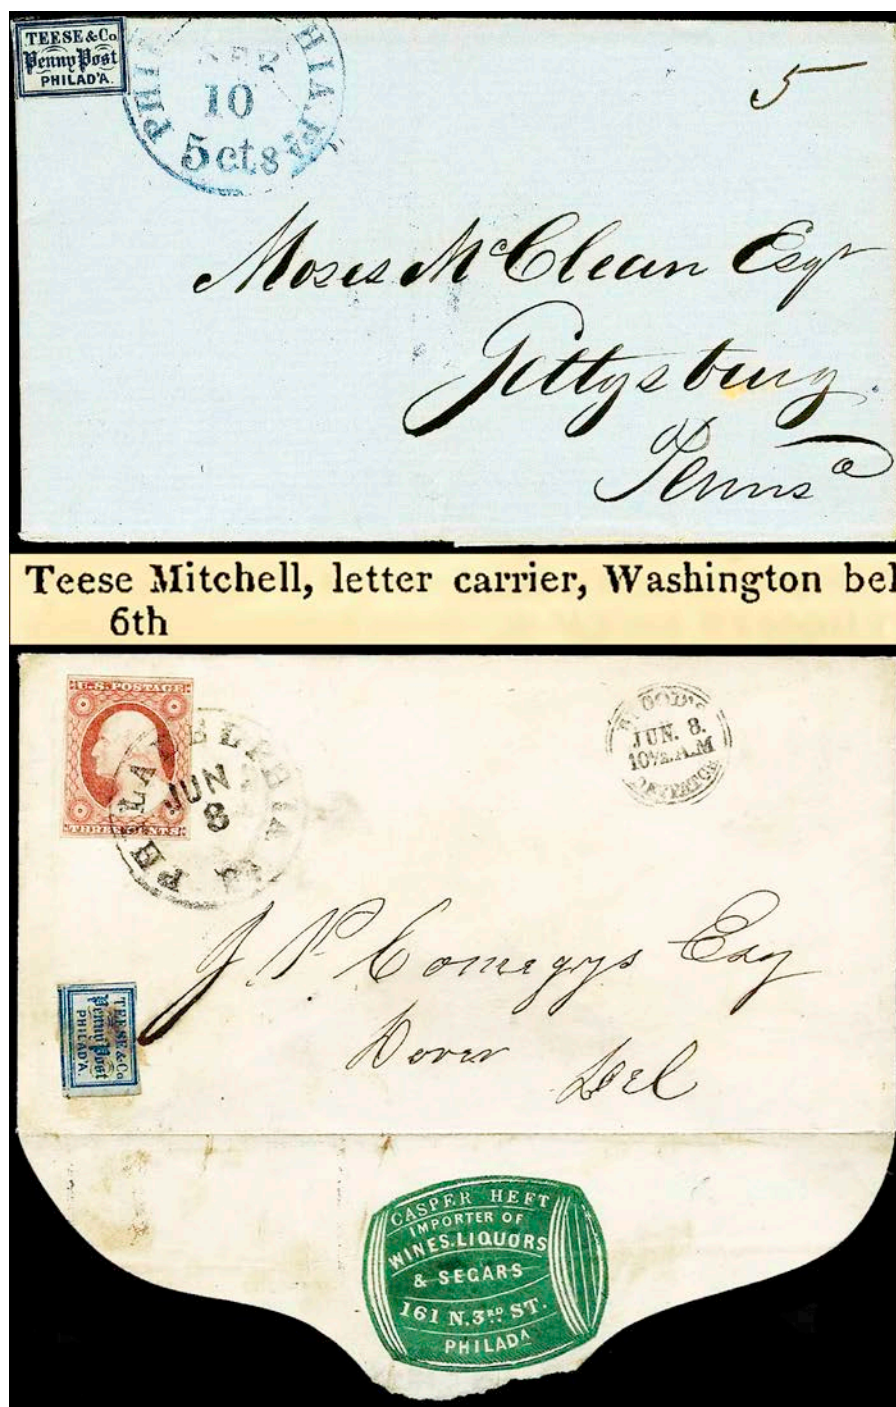 TEESE & Co
Penny Post
PHILAD'A.
PHIL HIA Pa
SEP
10
5 cts
5
Moses McClean Esqr
Gettysburg
Penns a
Teese Mitchell, letter carrier, Washington bel
6th
U.S. POSTAGE
THREE CENTS
PHILADELPHIA Pa
JUN
8
BLOOD'S
JUN. 8.
10½ A.M
DESPATCH
J. P. Comegys Esq
Dover
Del
TEESE & Co
Penny Post
PHILAD'A.
CASPER HEFT
IMPORTER OF
WINES. LIQUORS
& SEGARS
161 N. 3RD ST.
PHILADA